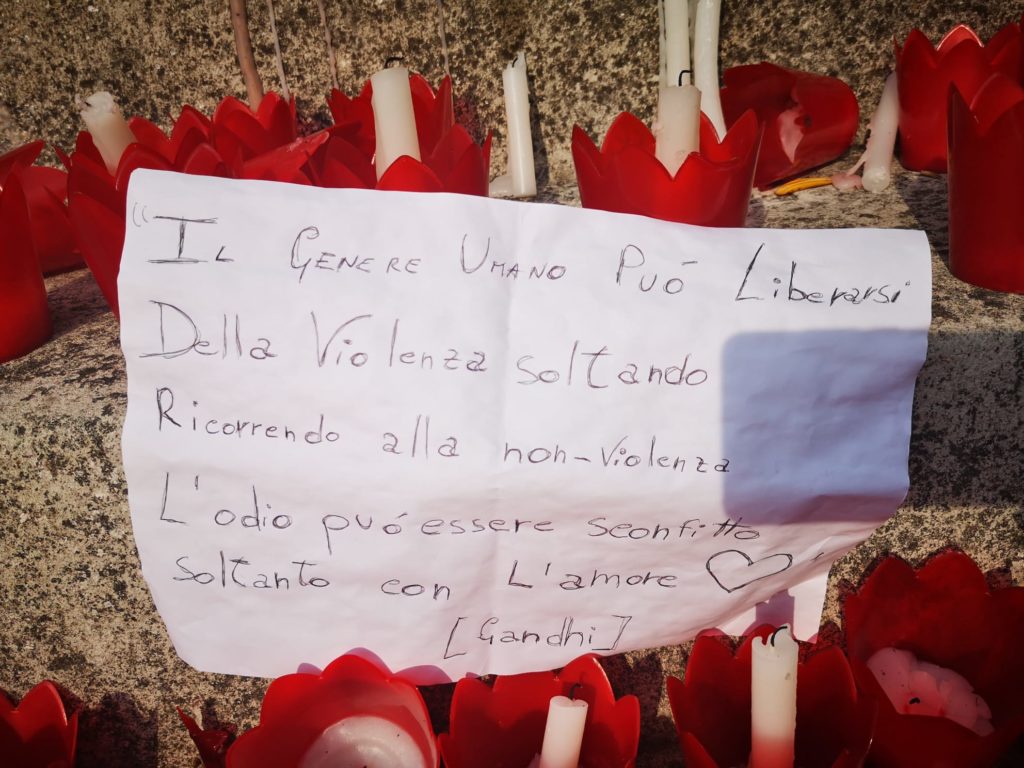 "Il Genere Umano Puó Liberarsi
Della Violenza soltando
Ricorrendo alla non-violenza
L'odio puó essere sconfitto
soltanto con L'amore ♡"
[Gandhi]